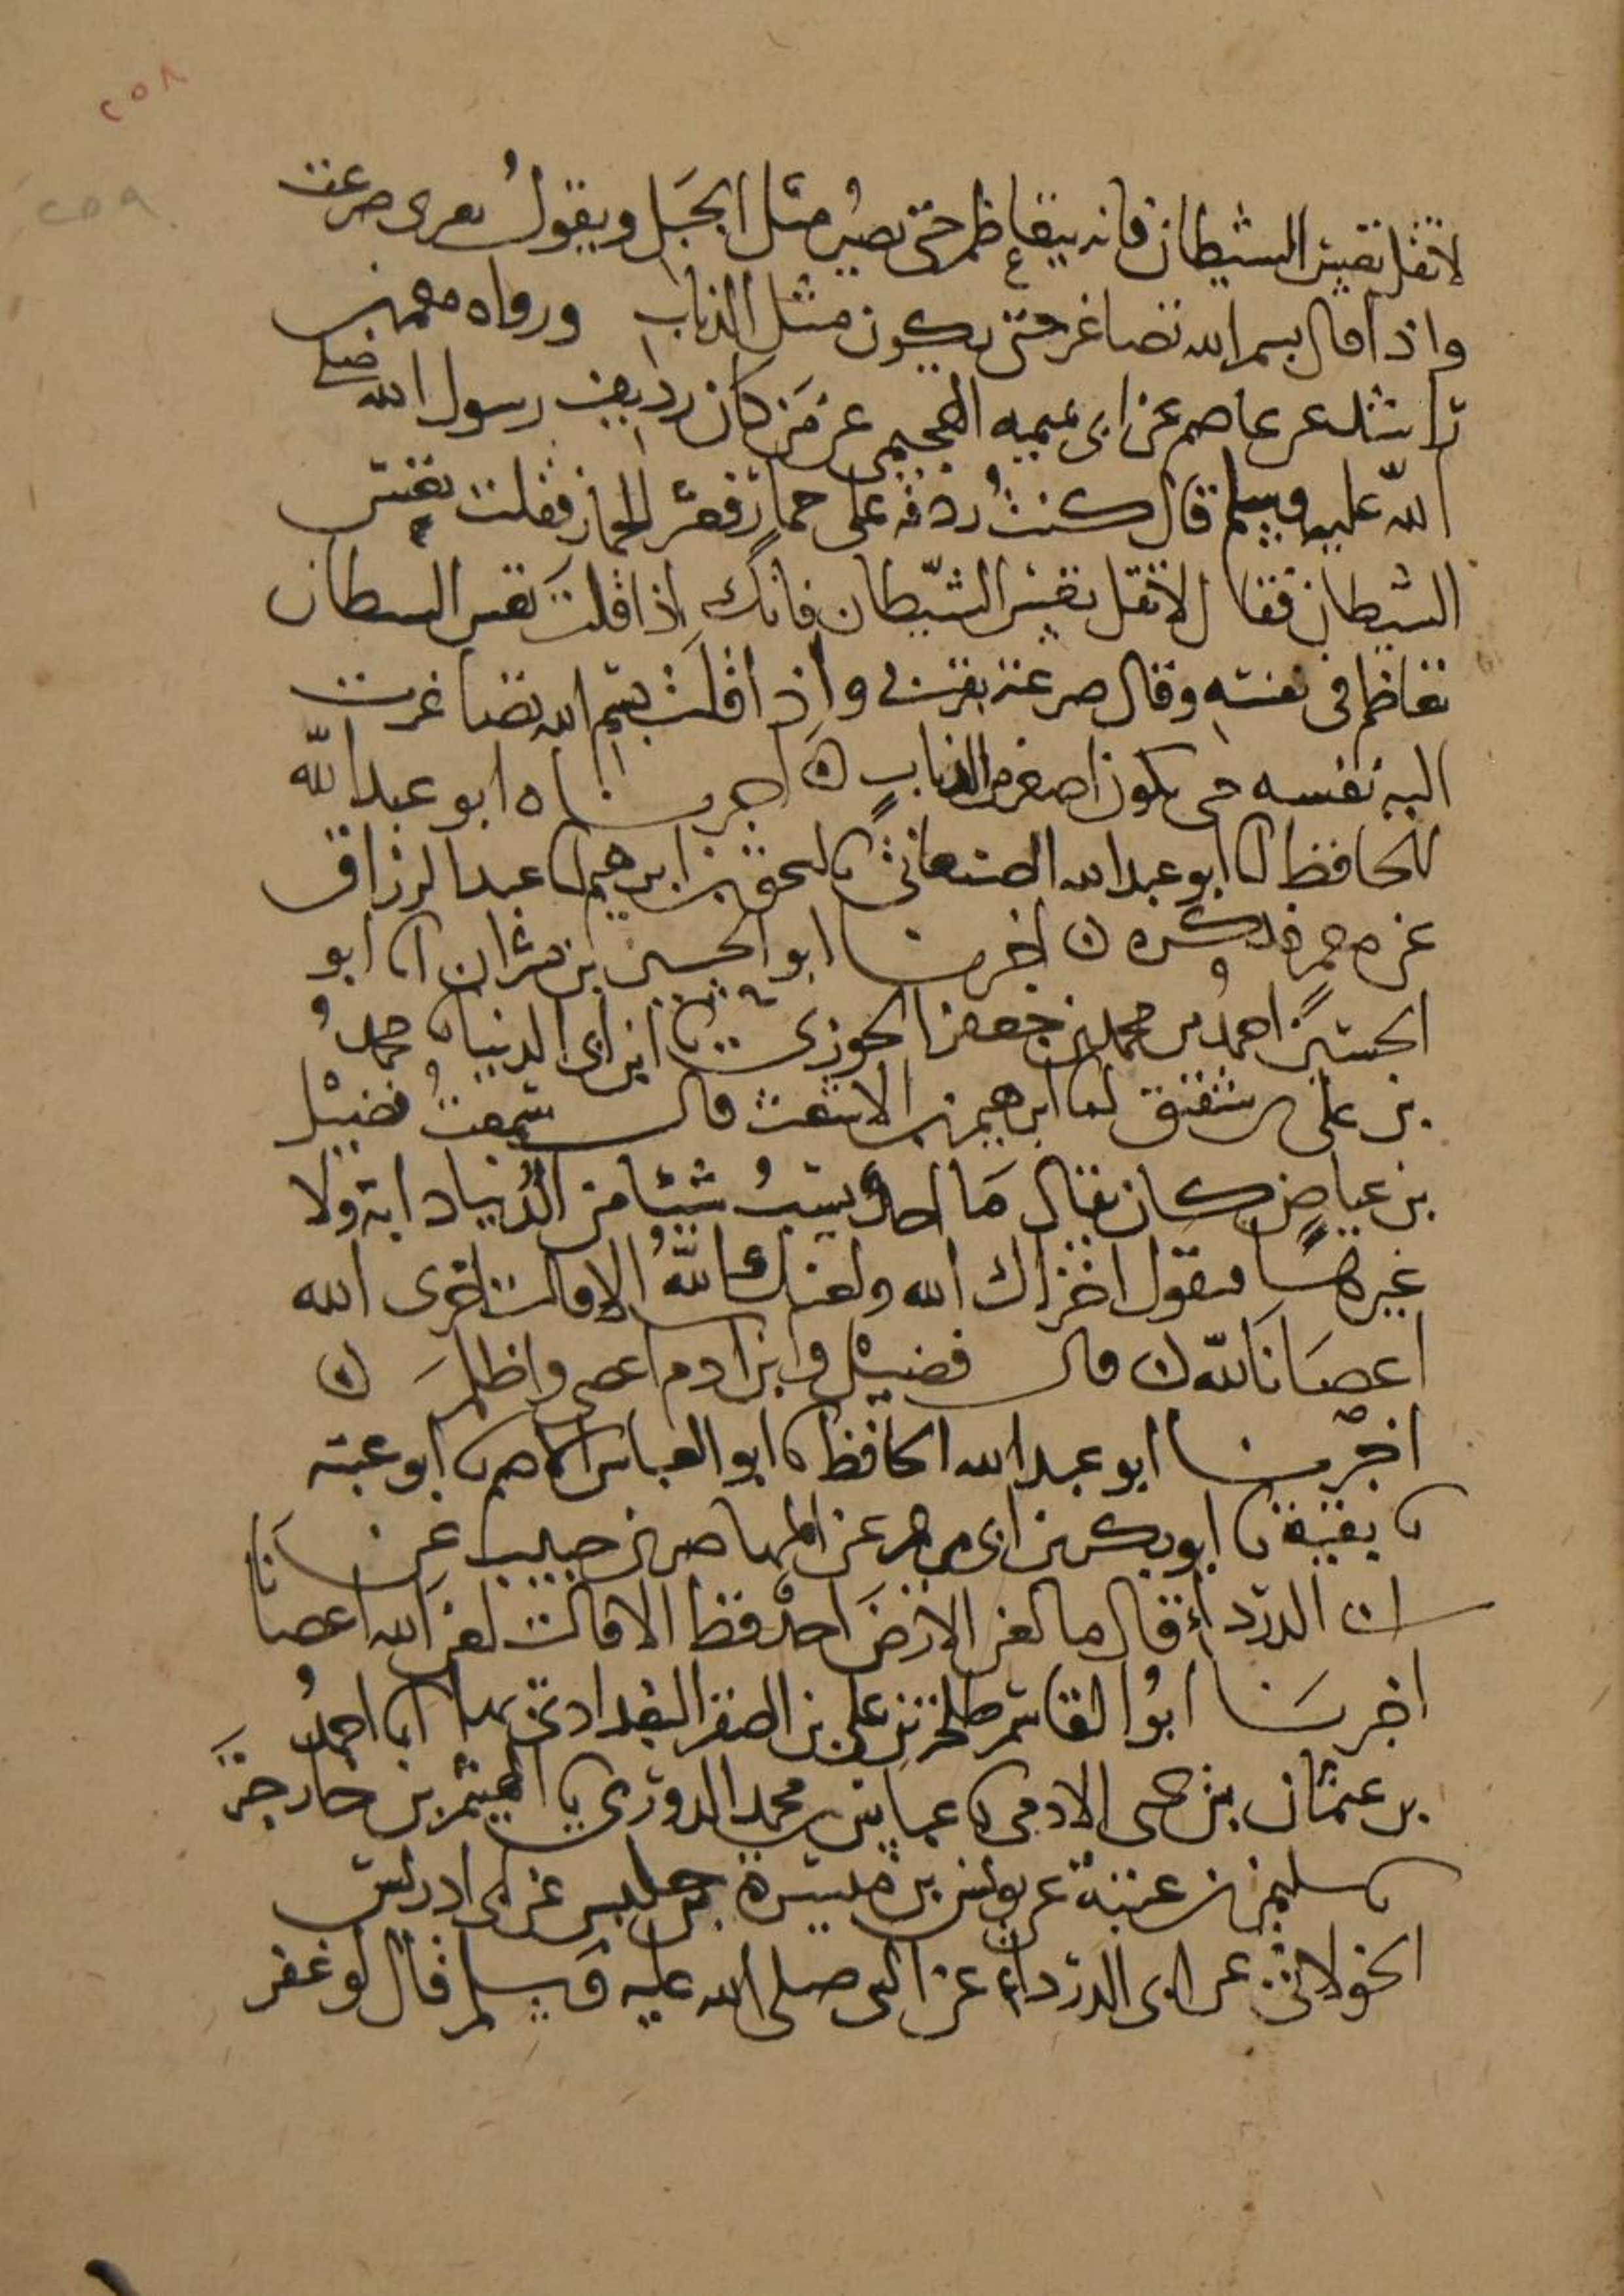 ٢٥٨
٢٥٩
لا تقل تعس الشيطان فانه يتعاظم حتى يصير مثل الجبل ويقول بعزى صرعت
واذا قال بسم الله تصاغر حتى يكون مثل الذباب ورواه معمر بن
راشد عن عاصم عن ابى تميمه الهجيمى عن من كان رديف رسول الله صلى
الله عليه وسلم قال كنت ردفه على حمار فعثر الحمار فقلت تعس
الشيطان فقال لا تقل تعس الشيطان فانك اذا قلت تعس الشيطان
تعاظم فى نفسه وقال صرعته بقوتى واذا قلت بسم الله تصاغرت
اليه نفسه حتى يكون اصغر من الذباب ه اخبرناه ابو عبد الله
الحافظ انا ابو عبد الله الصنعانى نا اسحق بن ابرهيم انا عبد الرزاق
عن معمر فذكره ه اخبرنا ابو الحسين بن بشران انا ابو
الحسين احمد بن محمد بن جعفر الجوزى نا ابن ابى الدنيا نا محمد
بن على بن شقيق انا ابرهيم بن الاشعث قال سمعت فضيل
بن عياض كان يقال ما احد يسب شيئا من الدنيا دابة ولا
غيرها فيقول اخزاك الله ولعنك الله الا قالت اخزى الله
اعصانا لله ه قال فضيل وابن ادم اعصى واظلم ه
اخبرنا ابو عبد الله الحافظ نا ابو العباس الاصم نا ابو عتبه
نا بقية نا ابو بكر بن ابى مريم عن المهاصر بن حبيب عن
ابى الدرداء قال ما لعن الارض احد قط الا قالت لعن الله اعصانا
اخبرنا ابو القاسم طلحة بن على بن الصقر البغدادى بها انا احمد
بن عثمان بن يحيى الادمى نا عباس بن محمد الدورى نا الهيثم بن خارجة
نا سليمن بن عتبة عن يونس بن ميسرة بن حلبس عن ابى ادريس
الخولانى عن ابى الدرداء عن النبى صلى الله عليه وسلم قال لو غفر